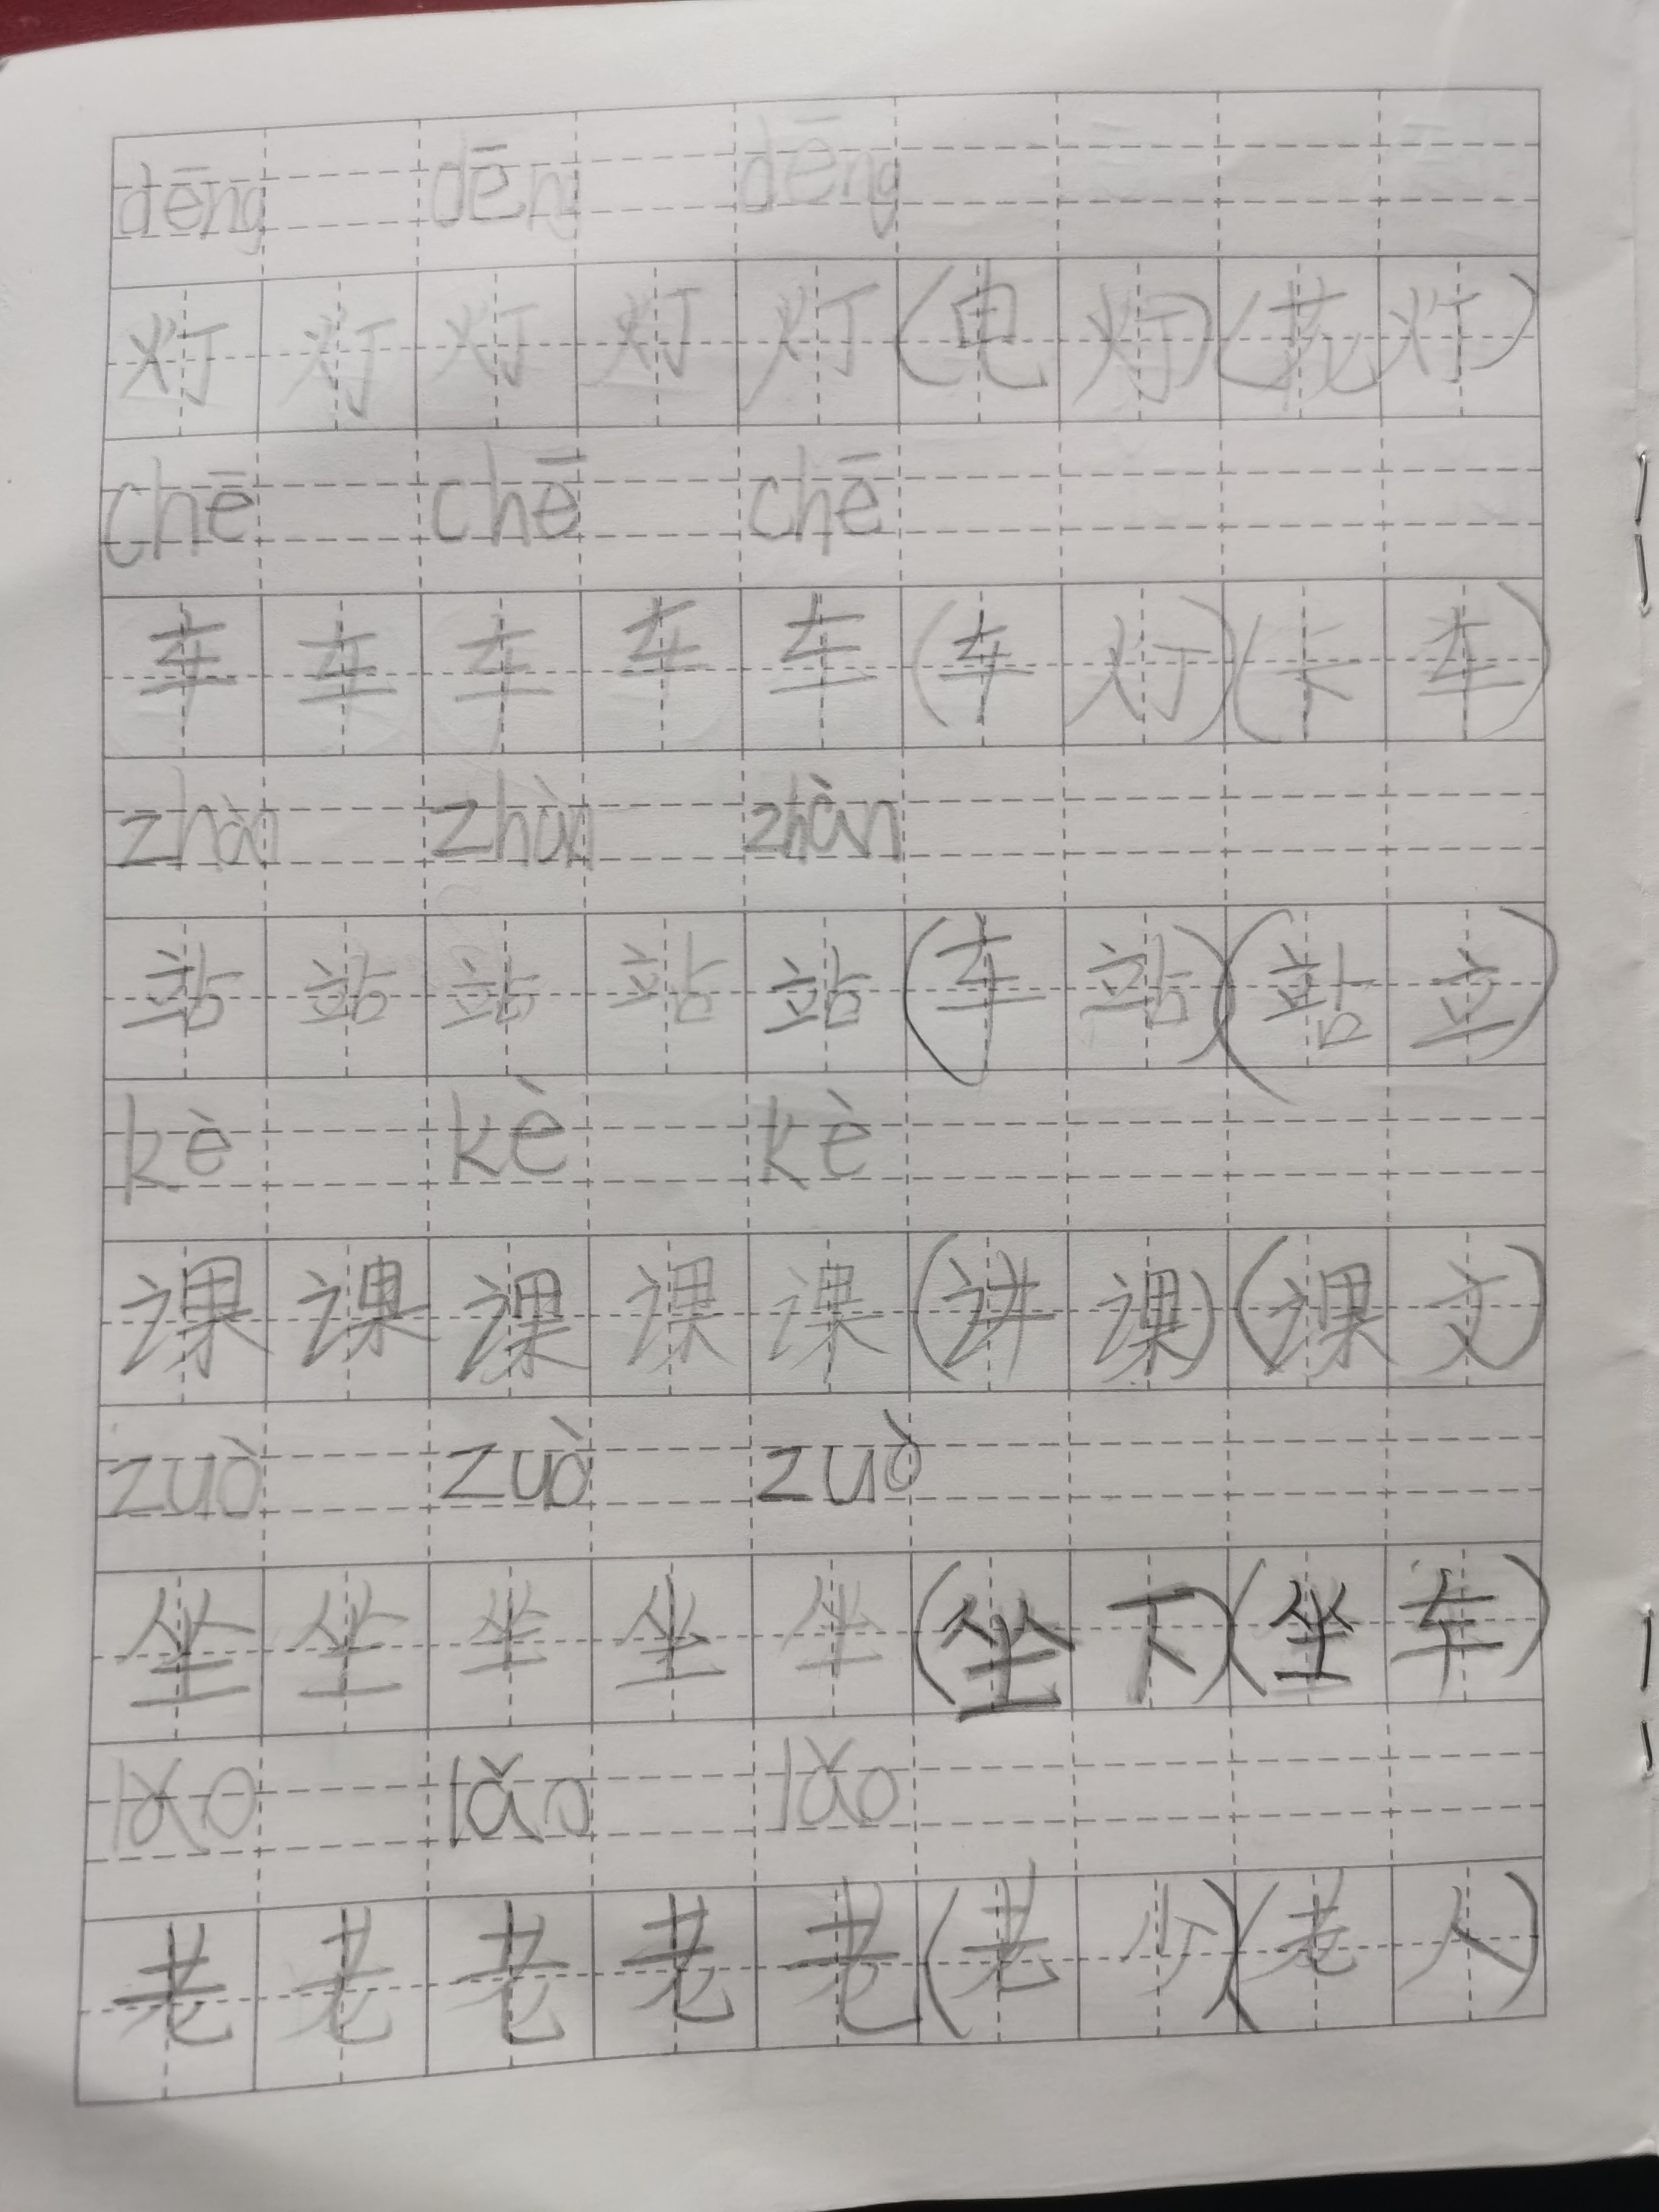 dēng dēng dēng
灯灯灯灯灯(电灯)(花灯)
chē chē chē
车车车车车(车灯)(卡车)
zhàn zhàn zhàn
站站站站站(车站)(站立)
kè kè kè
课课课课课(讲课)(课文)
zuò zuò zuò
坐坐坐坐坐(坐下)(坐车)
lǎo lǎo lǎo
老老老老老(老少)(老人)